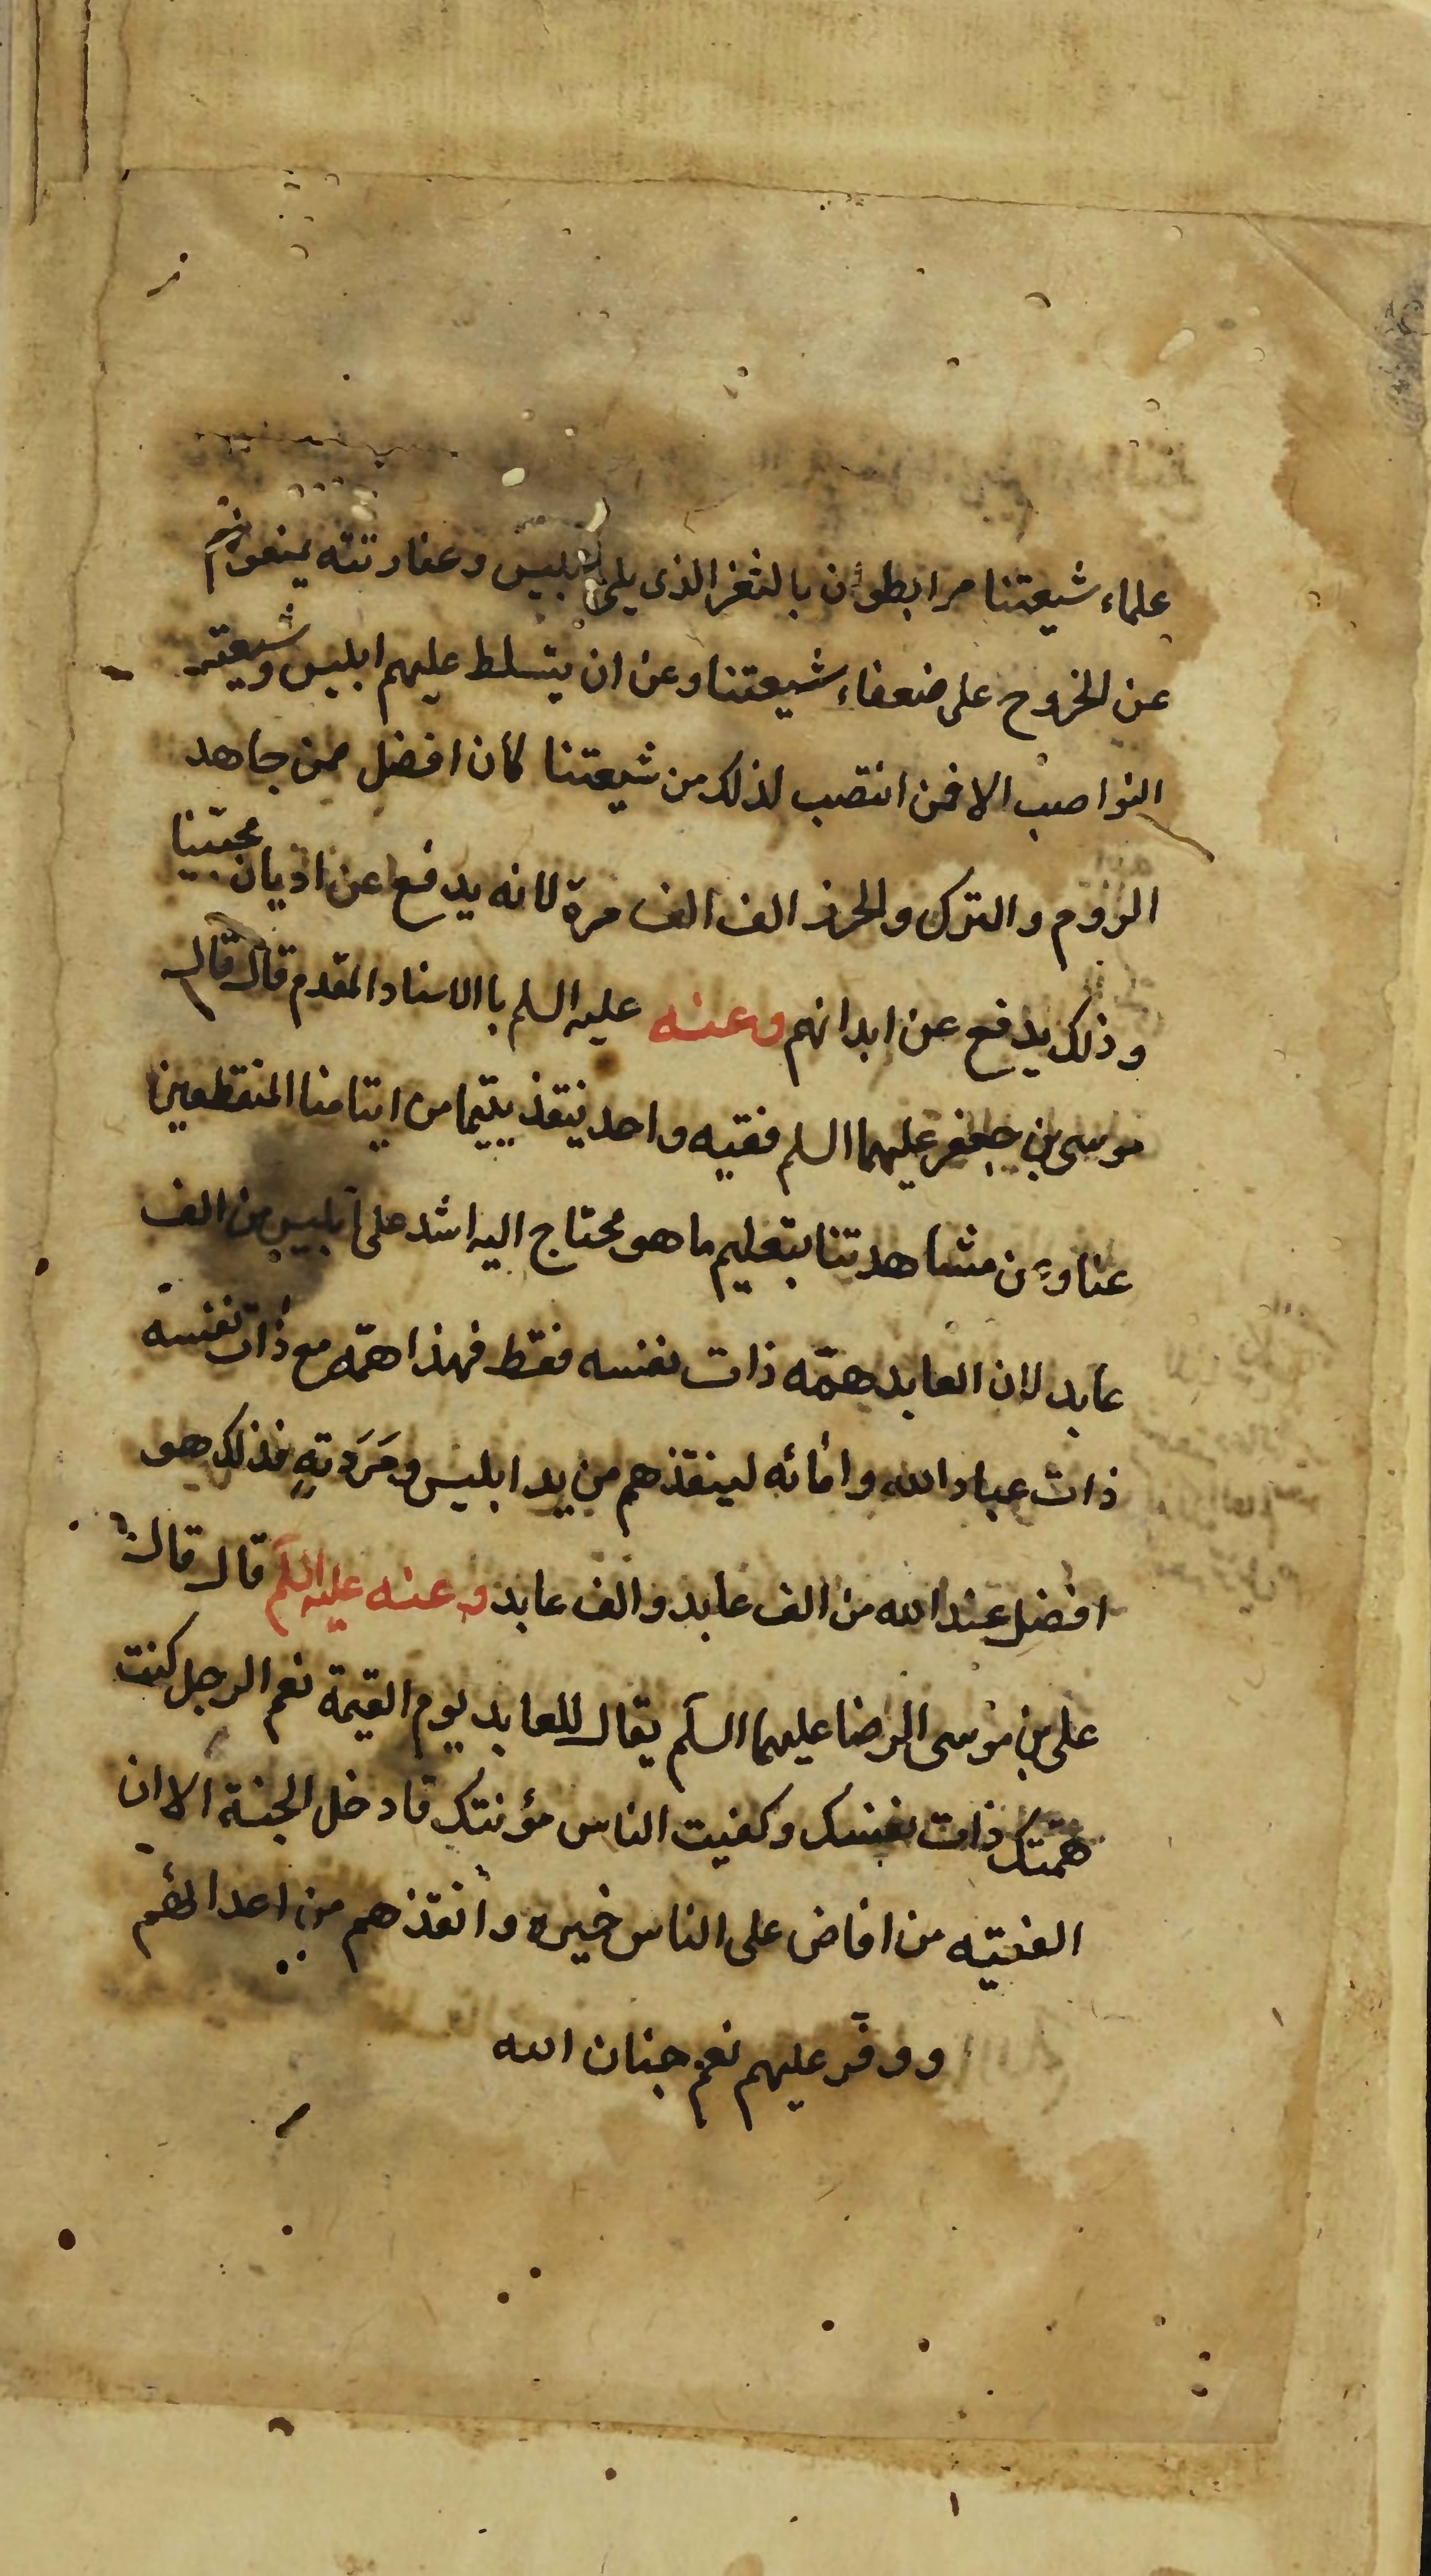 علماء شيعتنا مرابطون بالثغر الذى يلى ابليس وعفاريته يمنعونهم
عن الخروج على ضعفاء شيعتنا وعن ان يتسلط عليهم ابليس وشيعته
النواصب الا فمن انتصب لذلك من شيعتنا كان افضل ممن جاهد
الروم والترك والخرز الف الف مرة لانه يدفع عن اديان محبينا
وذلك يدفع عن ابدانهم وعنه عليه السلم باالاسناد المقدم قال قال
موسى بن جعفر عليهما السلم فقيه واحد ينقذ يتيما من ايتامنا المنقطعين
عنا و عن مشاهدتنا بتعليم ما هو محتاج اليه اشد على ابليس من الف
عابد لان العابد همّه ذات نفسه فقط فهذا همّه مع ذات نفسه
ذات عباد الله وامائه لينقذهم من يد ابليس ومَرَدته فذلك هو
افضل عند الله من الف عابد والف عابد وعنه عليه السلم قال قال
على بن موسى الرضا عليهما السلم يقال للعابد يوم القيمة نعم الرجل كنت
همّتك ذات نفسك وكفيت الناس مؤنتك فادخل الجنة الا ان
الفقيه من افاض على الناس خيره وأنقذهم من اعدائهم
ووفّر عليهم نعم جنان الله